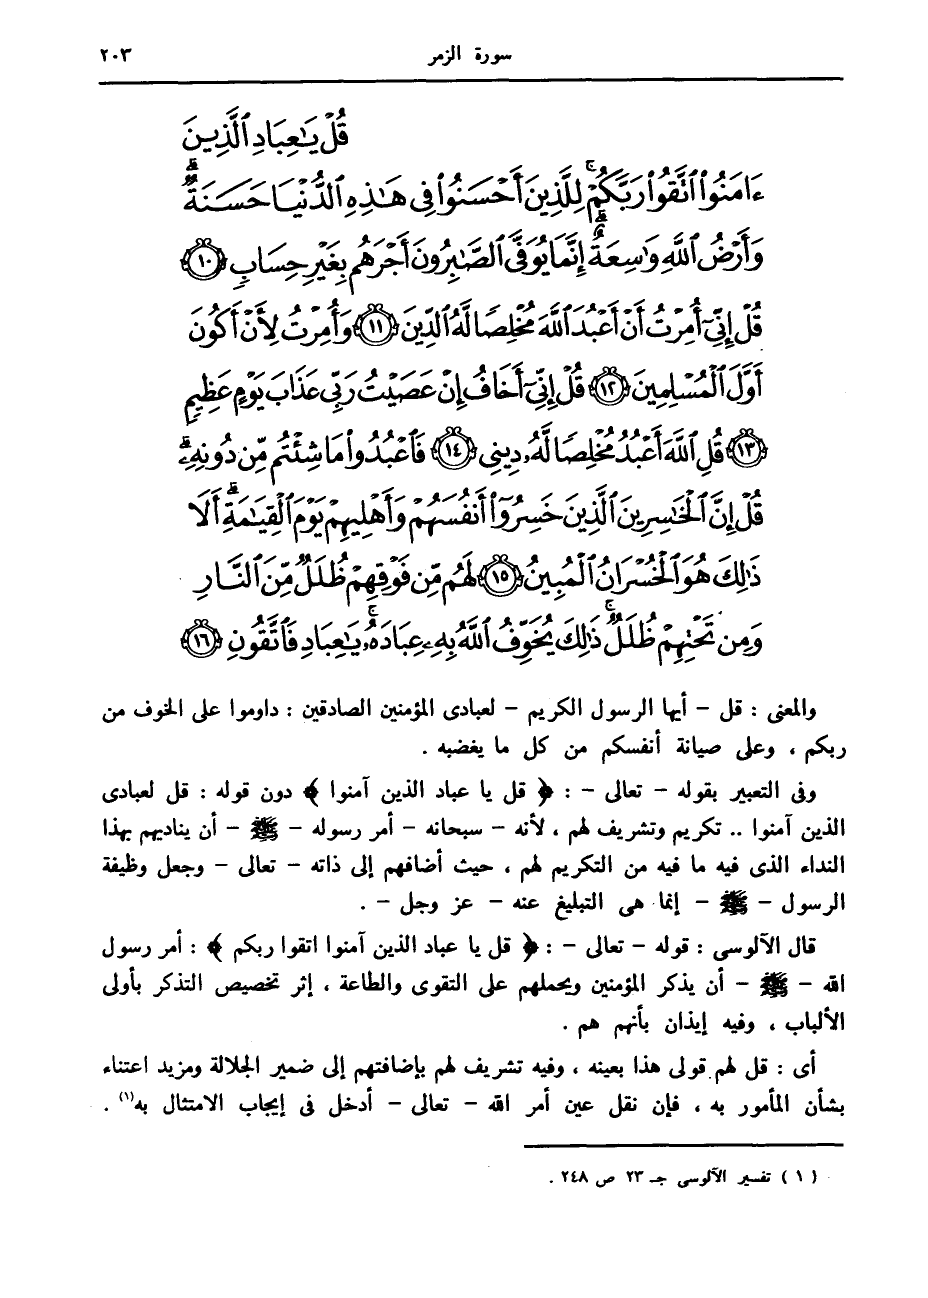 سورة الزمر ٢٠٣
قُلْ يَٰعِبَادِ ٱلَّذِينَ
ءَامَنُوا۟ ٱتَّقُوا۟ رَبَّكُمْ ۚ لِلَّذِينَ أَحْسَنُوا۟ فِى هَٰذِهِ ٱلدُّنْيَا حَسَنَةٌ ۗ
وَأَرْضُ ٱللَّهِ وَٰسِعَةٌ ۗ إِنَّمَا يُوَفَّى ٱلصَّٰبِرُونَ أَجْرَهُم بِغَيْرِ حِسَابٍ ١٠
قُلْ إِنِّىٓ أُمِرْتُ أَنْ أَعْبُدَ ٱللَّهَ مُخْلِصًا لَّهُ ٱلدِّينَ ١١ وَأُمِرْتُ لِأَنْ أَكُونَ
أَوَّلَ ٱلْمُسْلِمِينَ ١٢ قُلْ إِنِّىٓ أَخَافُ إِنْ عَصَيْتُ رَبِّى عَذَابَ يَوْمٍ عَظِيمٍ
١٣ قُلِ ٱللَّهَ أَعْبُدُ مُخْلِصًا لَّهُۥ دِينِى ١٤ فَٱعْبُدُوا۟ مَا شِئْتُم مِّن دُونِهِۦ ۗ
قُلْ إِنَّ ٱلْخَٰسِرِينَ ٱلَّذِينَ خَسِرُوٓا۟ أَنفُسَهُمْ وَأَهْلِيهِمْ يَوْمَ ٱلْقِيَٰمَةِ ۗ أَلَا
ذَٰلِكَ هُوَ ٱلْخُسْرَانُ ٱلْمُبِينُ ١٥ لَهُم مِّن فَوْقِهِمْ ظُلَلٌ مِّنَ ٱلنَّارِ
وَمِن تَحْتِهِمْ ظُلَلٌ ۚ ذَٰلِكَ يُخَوِّفُ ٱللَّهُ بِهِۦ عِبَادَهُۥ ۚ يَٰعِبَادِ فَٱتَّقُونِ ١٦
والمعنى : قل – أيها الرسول الكريم – لعبادى المؤمنين الصادقين : داوموا على الخوف من
ربكم ، وعلى صيانة أنفسكم من كل ما يغضبه .
وفى التعبير بقوله – تعالى – : ﴿ قل يا عباد الذين آمنوا ﴾ دون قوله : قل لعبادى
الذين آمنوا .. تكريم وتشريف لهم ، لأنه – سبحانه – أمر رسوله – ﷺ – أن يناديهم بهذا
النداء الذى فيه ما فيه من التكريم لهم ، حيث أضافهم إلى ذاته – تعالى – وجعل وظيفة
الرسول – ﷺ – إنما هى التبليغ عنه – عز وجل – .
قال الآلوسى : قوله – تعالى – : ﴿ قل يا عباد الذين آمنوا اتقوا ربكم ﴾ : أمر رسول
الله – ﷺ – أن يذكر المؤمنين ويحملهم على التقوى والطاعة ، إثر تخصيص التذكر بأولى
الألباب ، وفيه إيذان بأنهم هم .
أى : قل لهم قولى هذا بعينه ، وفيه تشريف لهم بإضافتهم إلى ضمير الجلالة ومزيد اعتناء
بشأن المأمور به ، فإن نقل عين أمر الله – تعالى – أدخل فى إيجاب الامتثال به(١) .
( ١ ) تفسير الآلوسى جـ ٢٣ ص ٢٤٨ .